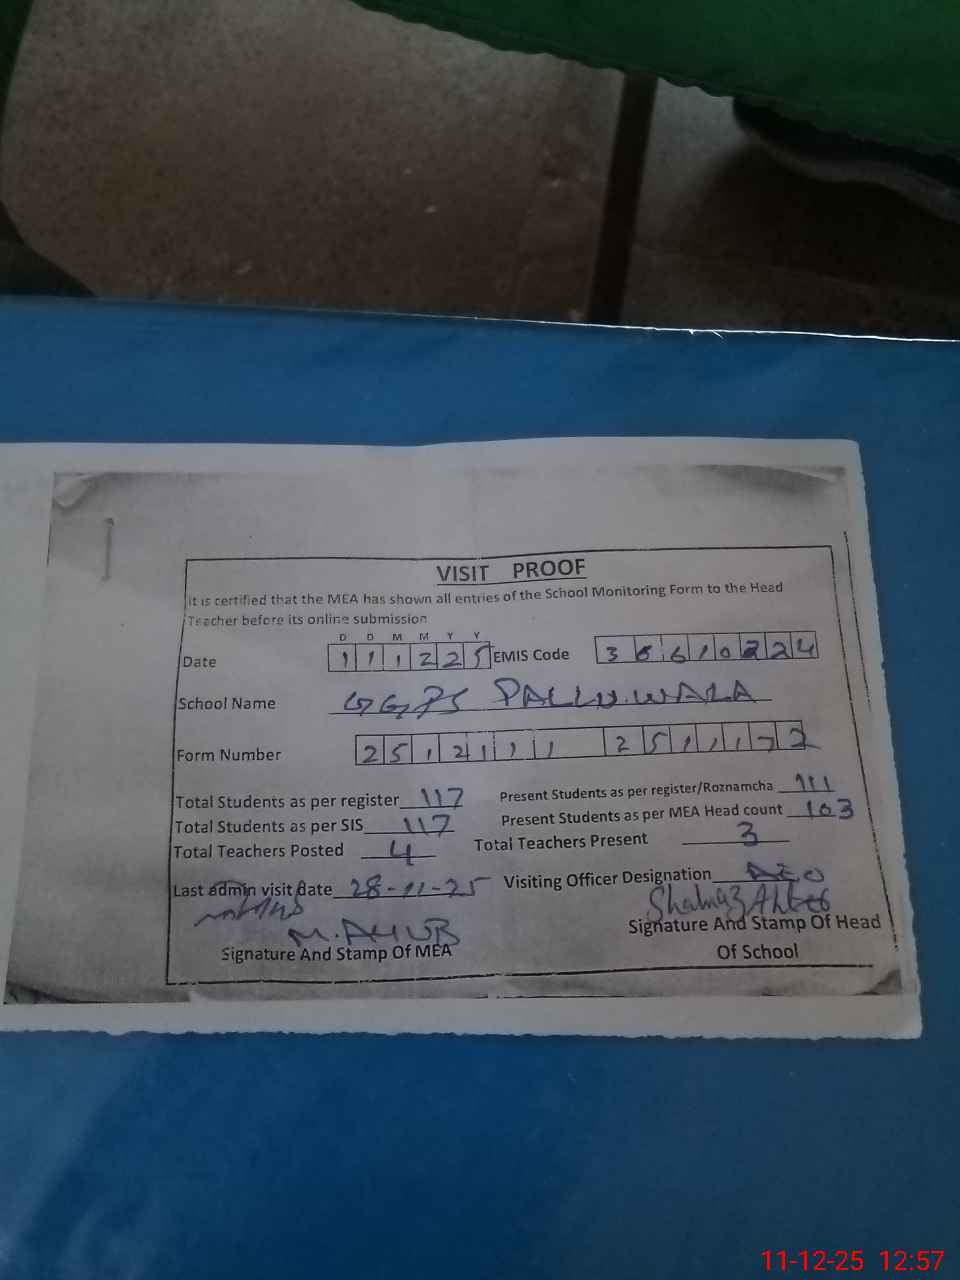 VISIT PROOF
It is certified that the MEA has shown all entries of the School Monitoring Form to the Head
Teacher before its online submission
D D M M Y Y
Date 1 1 1 2 2 5 EMIS Code 3 8 6 1 0 2 2 4
School Name GGPS PALLU.WALA
Form Number 2 5 1 2 1 1 1 2 5 1 1 1 7 2
Total Students as per register 117 Present Students as per register/Roznamcha 111
Total Students as per SIS 117 Present Students as per MEA Head count 103
Total Teachers Posted 4 Total Teachers Present 3
Last admin visit date 28-11-25 Visiting Officer Designation AEO
M. AYUB
Signature And Stamp Of MEA Signature And Stamp Of Head
Of School
11-12-25 12:57